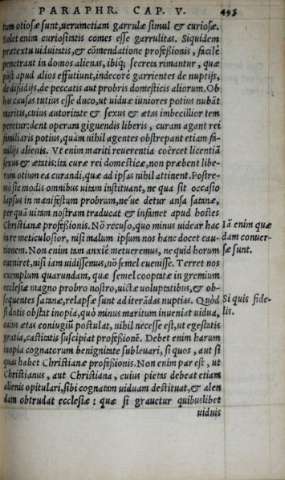 PARAPHR. CAP. V. 493
tum otiosæ sunt, uerumetiam garrulæ simul & curiosæ.
Solet enim curiositatis comes esse garrulitas. Siquidem
prætextu uiduitatis, & cõmendatione professionis, facilè
penetrant in domos alienas, ibiq; secreta rimantur, quæ
post apud alios effutiunt, indecorè garrientes de nuptijs,
de dissidijs, de peccatis aut probris domesticis aliorum. Ob
has causas tutius esse duco, ut uiduæ iuniores potius nubãt
maritis, cuius autoritate & sexus & ætas imbecillior tem
peretur: dent operam gignendis liberis, curam agent rei
familiaris potius, quàm nihil agentes obstrepant etiam fa-
milijs alienis. Vt enim mariti reuerentia coërcet licentiã
sexus & ætatis: ita curæ rei domesticæ, non præbent libe-
rum otium ea curandi, quæ ad ipsas nihil attinent. Postre-
mò sic modis omnibus uitam instituant, ne qua sit occasio
lapsus in manifestum probrum, neue detur ansa satanæ,
per quã uitam nostram traducat & infamet apud hostes
Christianæ professionis. Nõ recuso, quo minus uidear hac
in re meticulosior, nisi malum ipsum nos hanc docet cau-
tionem. Non enim tam anxiè metueremus, ne quid horum
eueniret, nisi iam uidissemus, nõ semel euenisse. Terret nos
exemplum quarundam, quæ semel cooptatæ in gremium
ecclesiæ magno probro nostro, uictæ uoluptatibus, & ob-
sequentes satanæ, relapsæ sunt ad iterãdas nuptias. Quòd
si dotis obstat inopia, quò minus maritum inueniat uidua,
cuius ætas coniugiũ postulat, nihil necesse est, ut egestatis
gratia, castitatis suscipiat professionẽ. Debet enim harum
inopia cognatorum benignitate subleuari, si quos, aut si
quas habet Christianæ professionis. Non enim par est, ut
Christianus, aut Christiana, cuius pietas debeat etiam
alienis opitulari, sibi cognatam uiduam destituat, & alen
dam obtrudat ecclesiæ: quæ si grauetur quibuslibet
uiduis
Iã enim quæ
dam conuer-
sæ sunt.
Si quis fide-
lis.